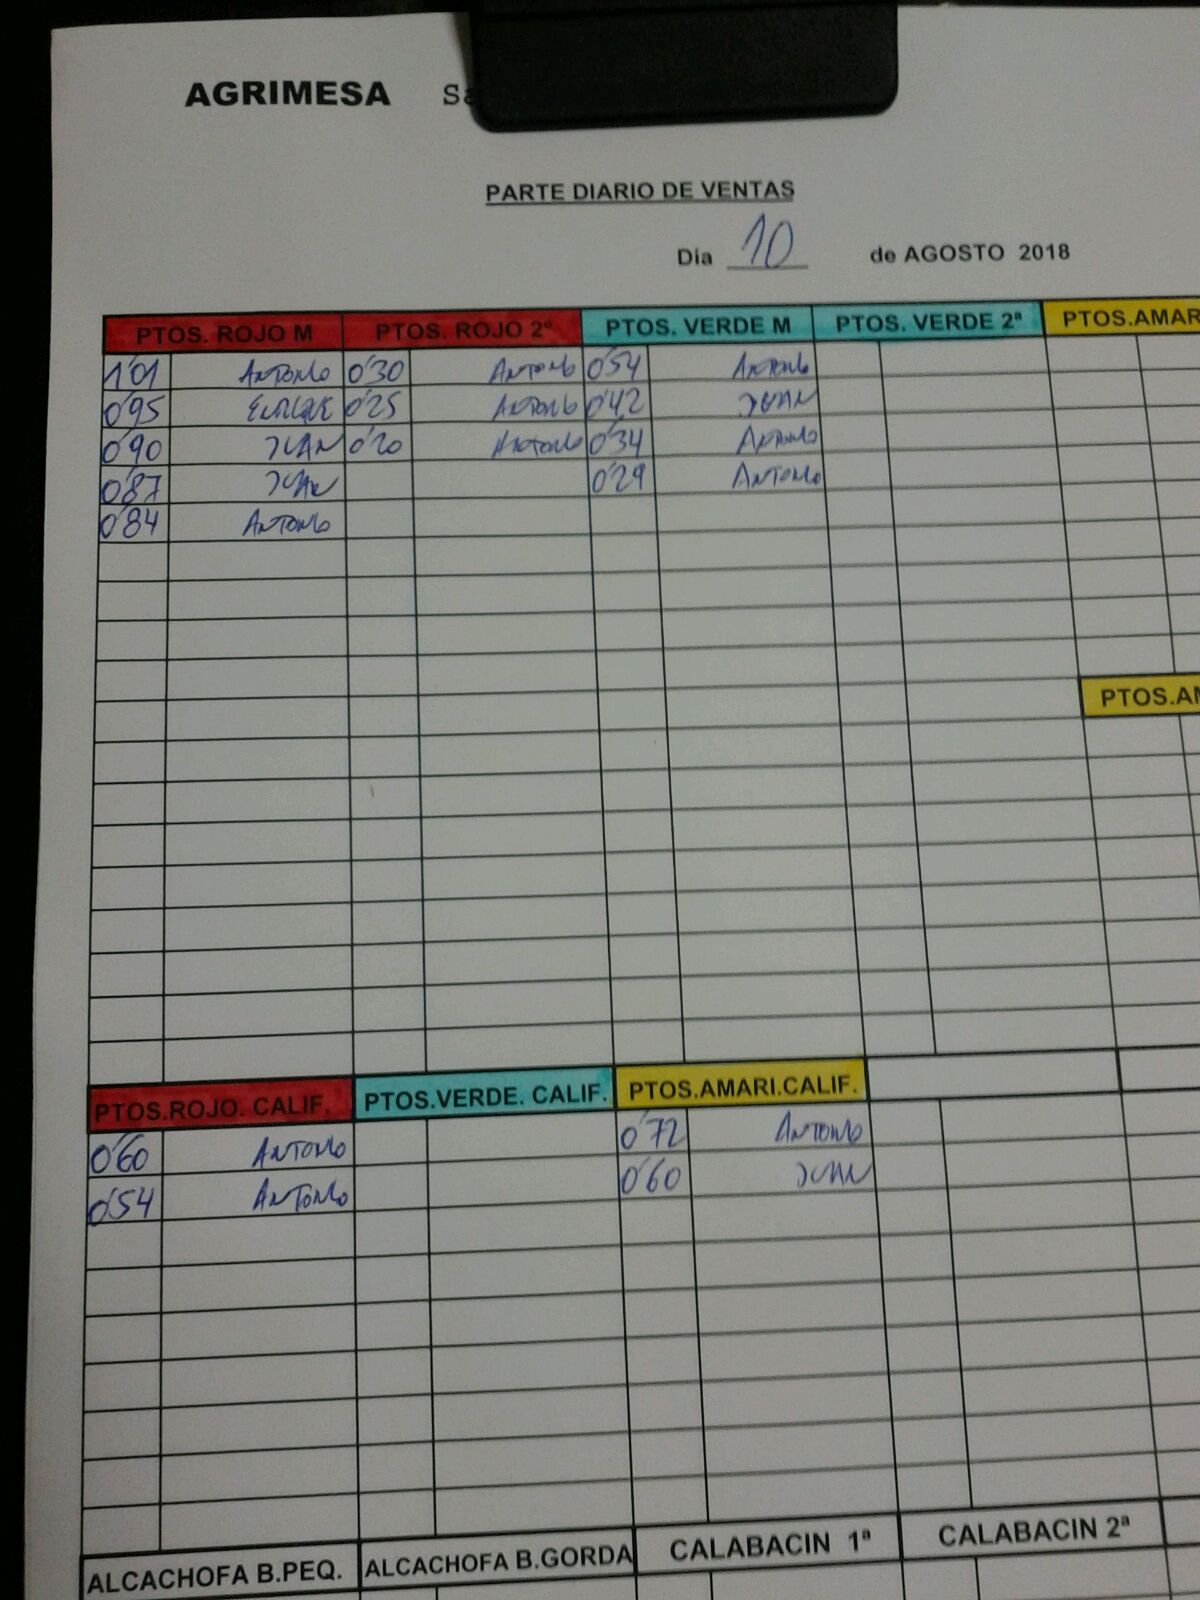 AGRIMESA
PARTE DIARIO DE VENTAS
Día 10 de AGOSTO 2018
PTOS. ROJO M PTOS. ROJO 2ª PTOS. VERDE M PTOS. VERDE 2ª PTOS.AMAR
1'01 ANTONIO 0'30 ANTONIO 0'54 ANTONIO
0'95 ENRIQUE 0'25 ANTONIO 0'42 JUAN
0'90 JUAN 0'20 ANTONIO 0'34 ANTONIO
0'87 JUAN 0'29 ANTONIO
0'84 ANTONIO
PTOS.AM
PTOS.ROJO. CALIF. PTOS.VERDE. CALIF. PTOS.AMARI.CALIF.
0'60 ANTONIO 0'72 ANTONIO
0'54 ANTONIO 0'60 JUAN
ALCACHOFA B.PEQ. ALCACHOFA B.GORDA CALABACIN 1ª CALABACIN 2ª